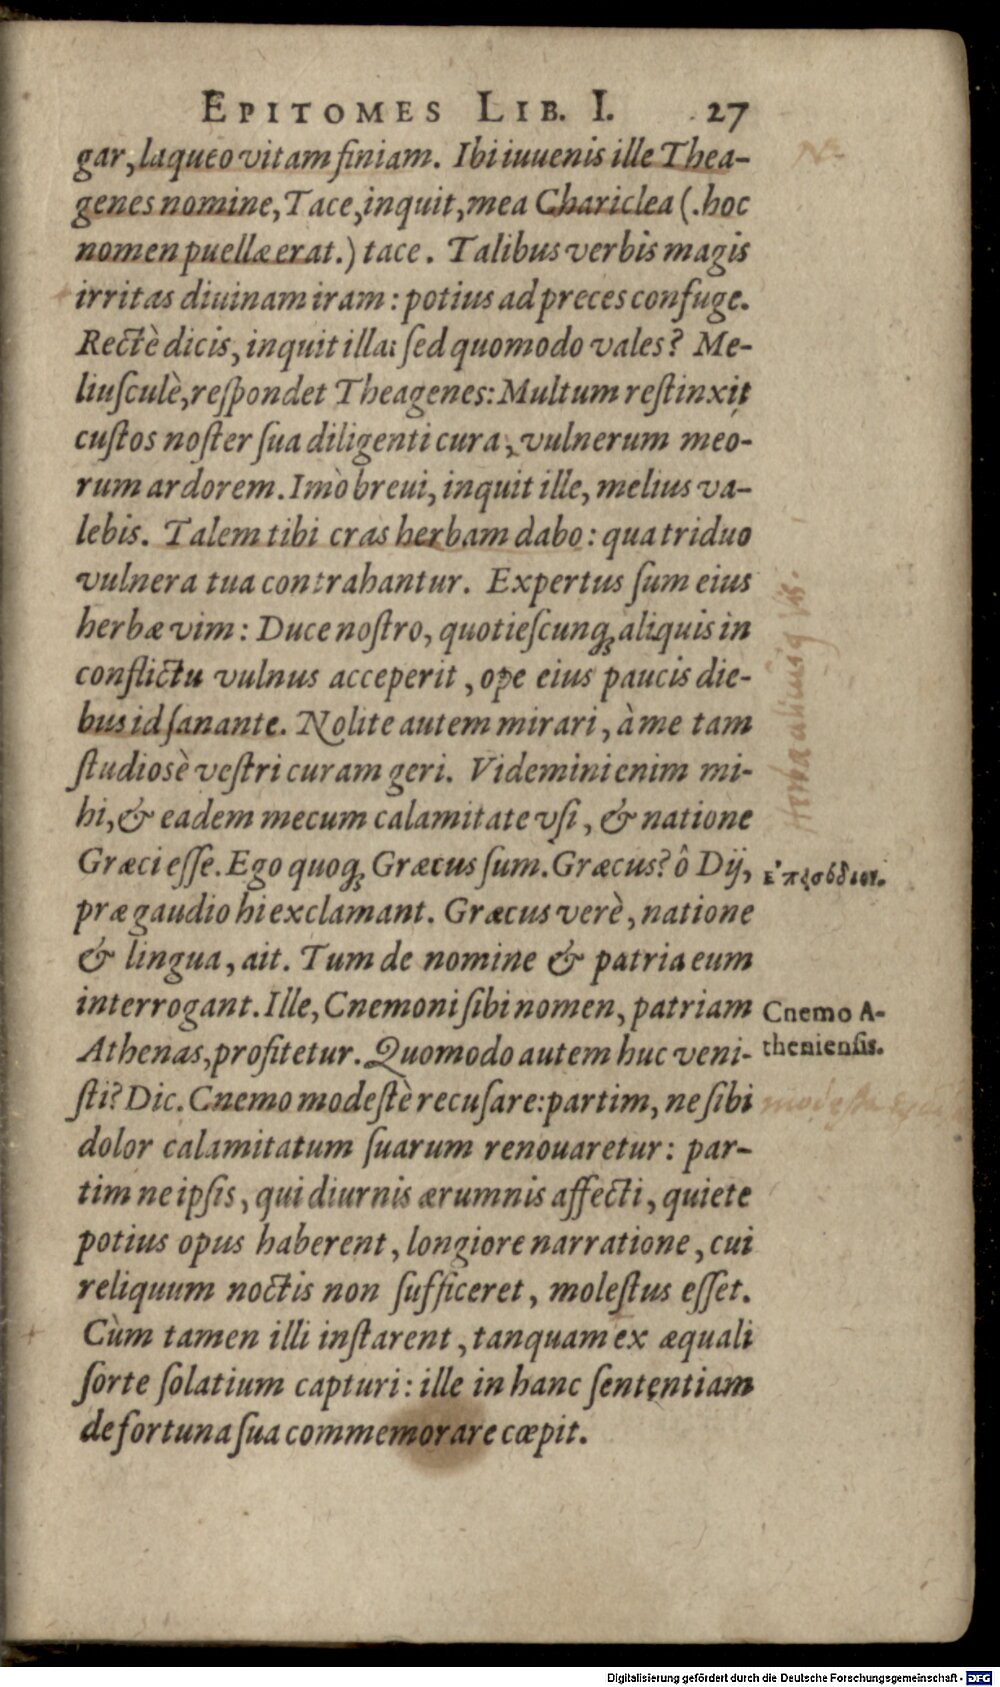 EPITOMES LIB. I. 27
gar, laqueo vitam finiam. Ibi iuuenis ille Thea-
genes nomine, Tace, inquit, mea Chariclea (.hoc
nomen puellæ erat.) tace. Talibus verbis magis
irritas diuinam iram: potius ad preces confuge.
Rectè dicis, inquit illa: sed quomodo vales? Me-
liusculè, respondet Theagenes: Multum restinxit
custos noster sua diligenti cura, vulnerum meo-
rum ardorem. Imò breui, inquit ille, melius va-
lebis. Talem tibi cras herbam dabo: qua triduo
vulnera tua contrahantur. Expertus sum eius
herbæ vim: Duce nostro, quotiescunq; aliquis in
conflictu vulnus acceperit, ope eius paucis die-
bus id sanante. Nolite autem mirari, à me tam
studiosè vestri curam geri. Videmini enim mi-
hi, & eadem mecum calamitate vsi, & natione
Græci esse. Ego quoq; Græcus sum. Græcus? ô Dij,
præ gaudio hi exclamant. Græcus verè, natione
& lingua, ait. Tum de nomine & patria eum
interrogant. Ille, Cnemoni sibi nomen, patriam
Athenas, profitetur. Quomodo autem huc veni-
sti? Dic. Cnemo modestè recusare: partim, ne sibi
dolor calamitatum suarum renouaretur: par-
tim ne ipsis, qui diurnis ærumnis affecti, quiete
potius opus haberent, longiore narratione, cui
reliquum noctis non sufficeret, molestus esset.
Cùm tamen illi instarent, tanquam ex æquali
sorte solatium capturi: ille in hanc sententiam
de fortuna sua commemorare cœpit.
Cnemo A-
theniensis.
Digitalisierung gefördert durch die Deutsche Forschungsgemeinschaft - DFG